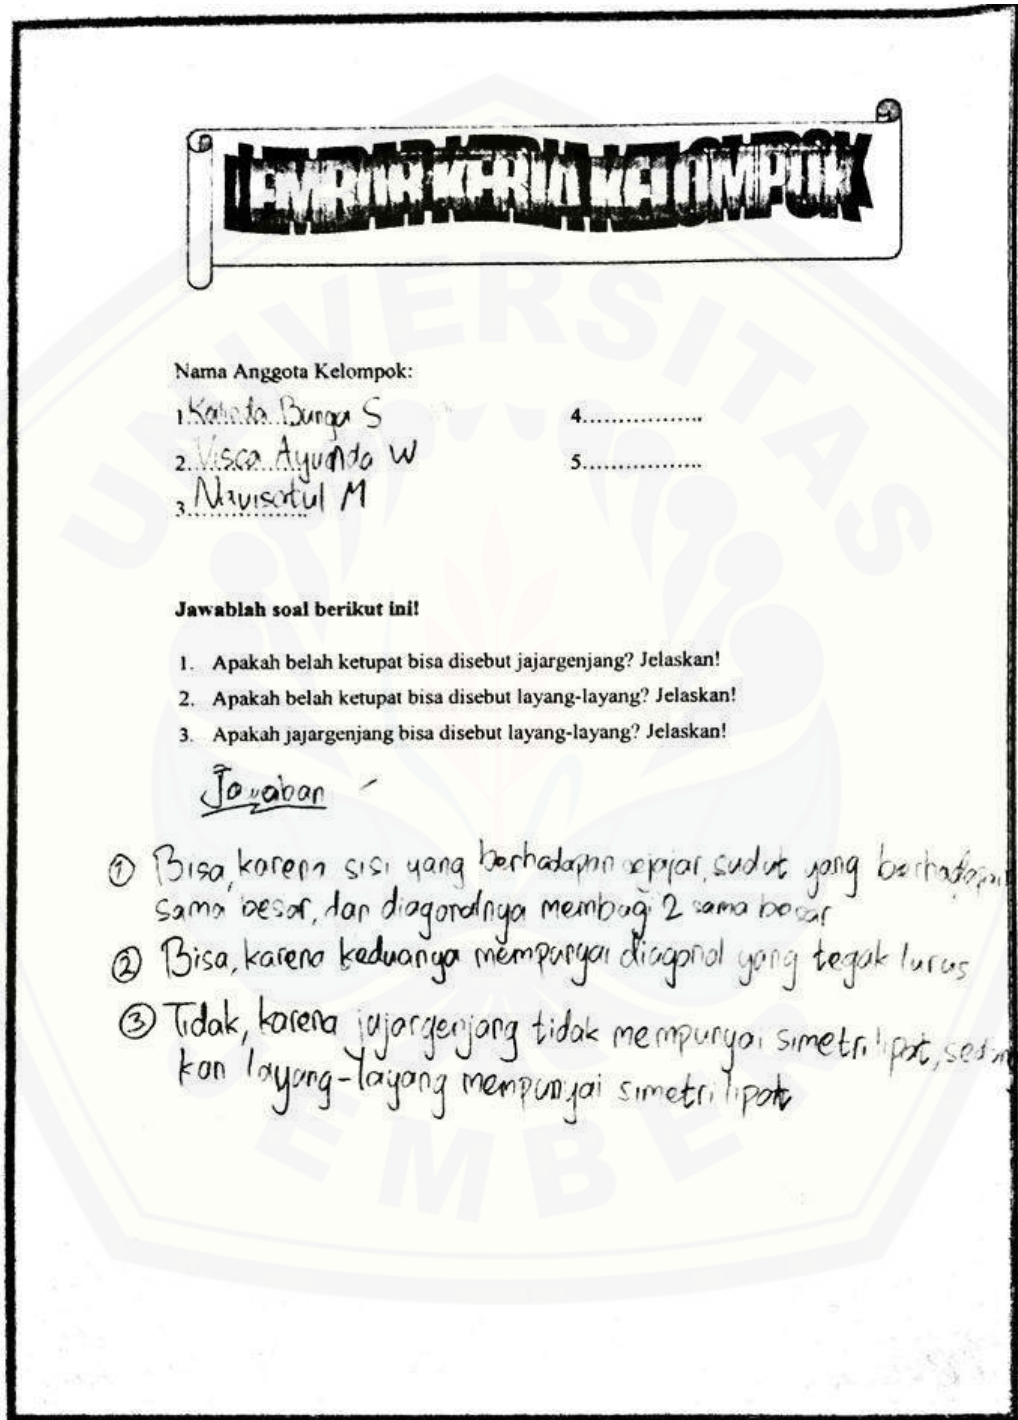 LEMBAR KERJA KELOMPOK
Nama Anggota Kelompok:
1. Bunga S
4.................
2. Visca Ayunda W
5.................
3. M
Jawablah soal berikut ini!
1. Apakah belah ketupat bisa disebut jajargenjang? Jelaskan!
2. Apakah belah ketupat bisa disebut layang-layang? Jelaskan!
3. Apakah jajargenjang bisa disebut layang-layang? Jelaskan!
Jawaban
① Bisa, karena sisi yang berhadapan sejajar, sudut yang berhadapan
sama besar, dan diagonalnya membagi 2 sama besar
② Bisa, karena keduanya mempunyai diagonal yang tegak lurus
③ Tidak, karena jajargenjang tidak mempunyai simetri lipat, sedang
kan layang-layang mempunyai simetri lipat
UNIVERSITAS
JEMBER